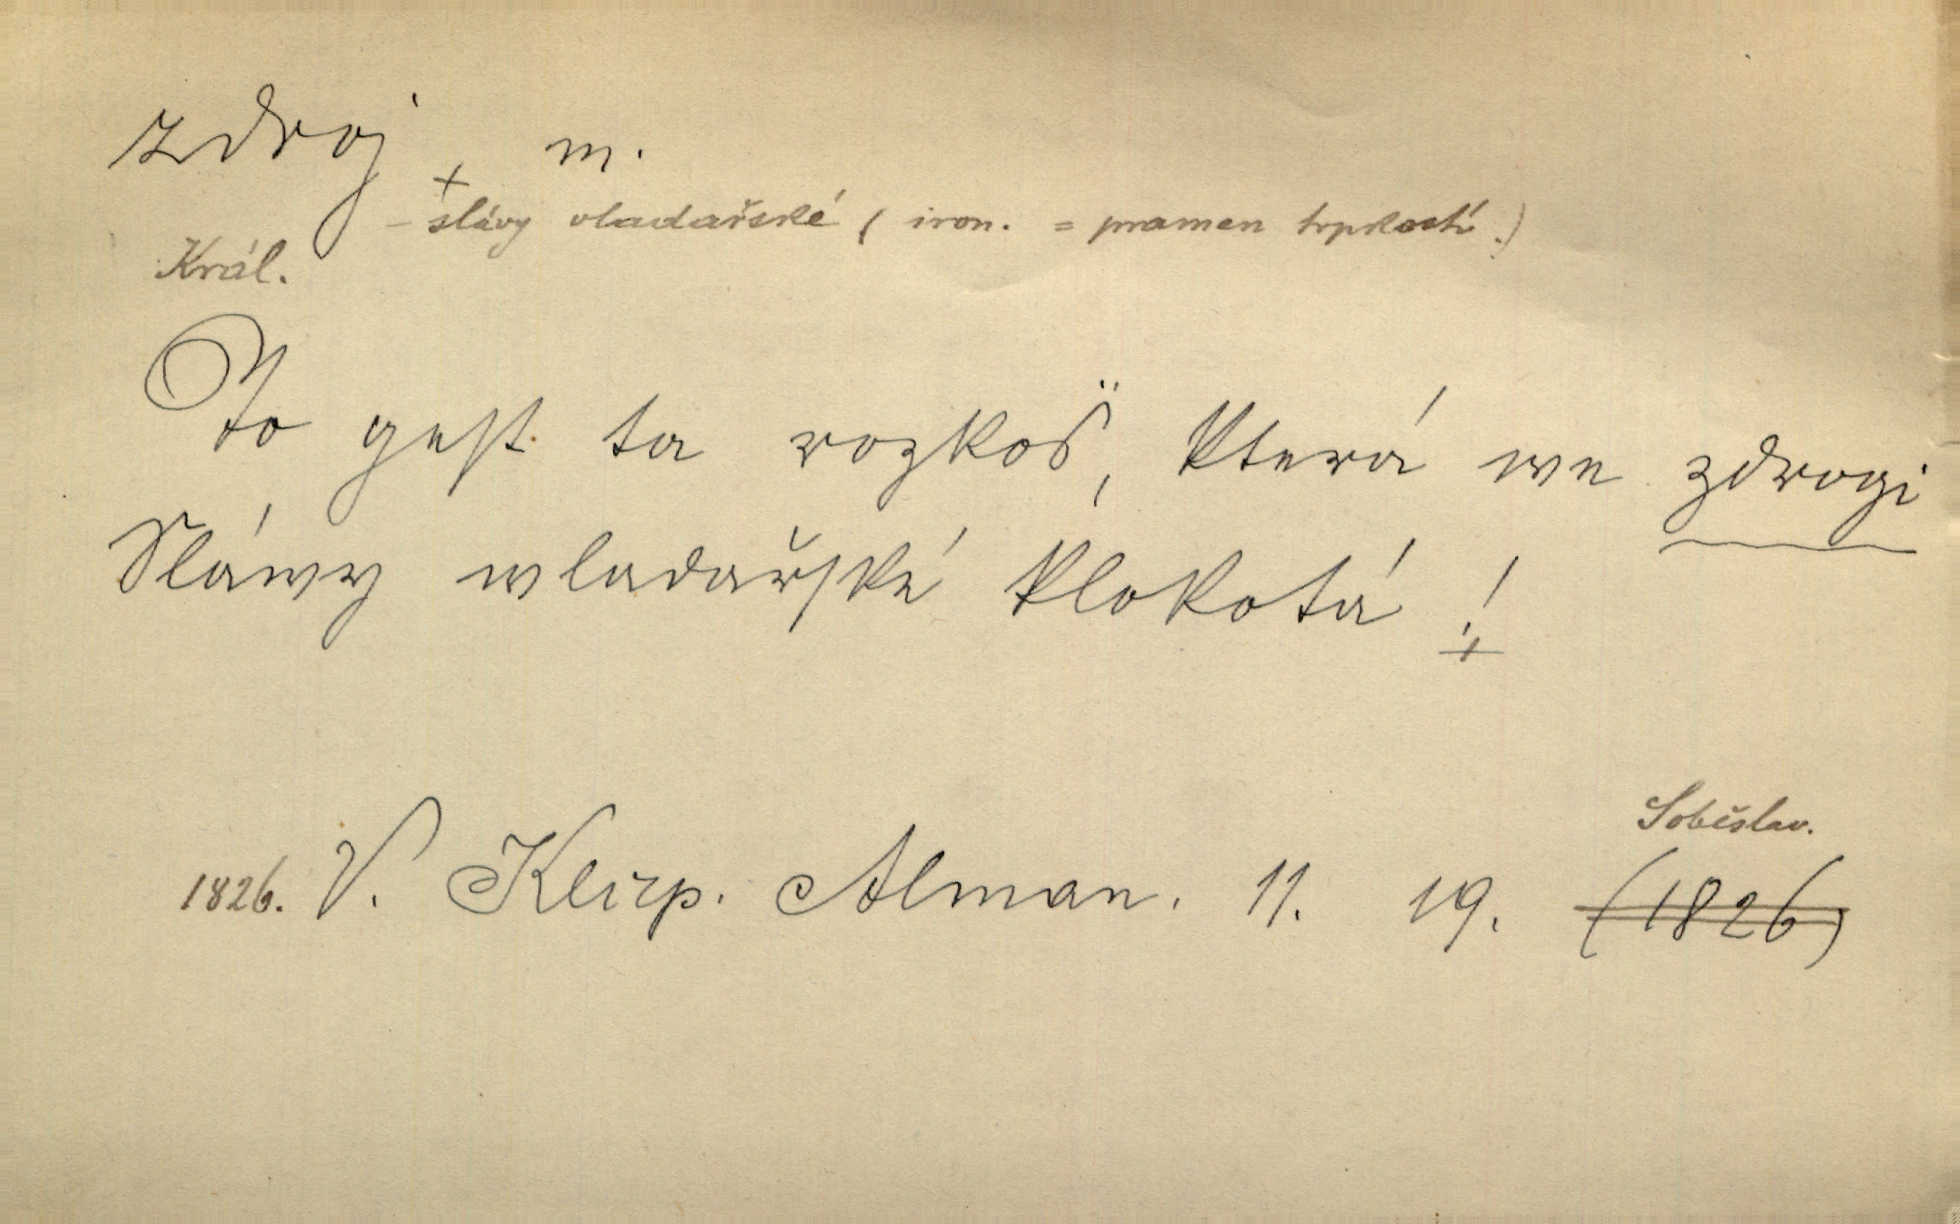 zdroj, m.
+
- slávy vladařské (iron. = pramen trpkostí.)
Král.
To gest ta rozkoš, která we zdrogi
Slávvy wladařské klokotá!
+
Soběslav.
1826. V. Klicp. Alman. 11. 19. (1826)